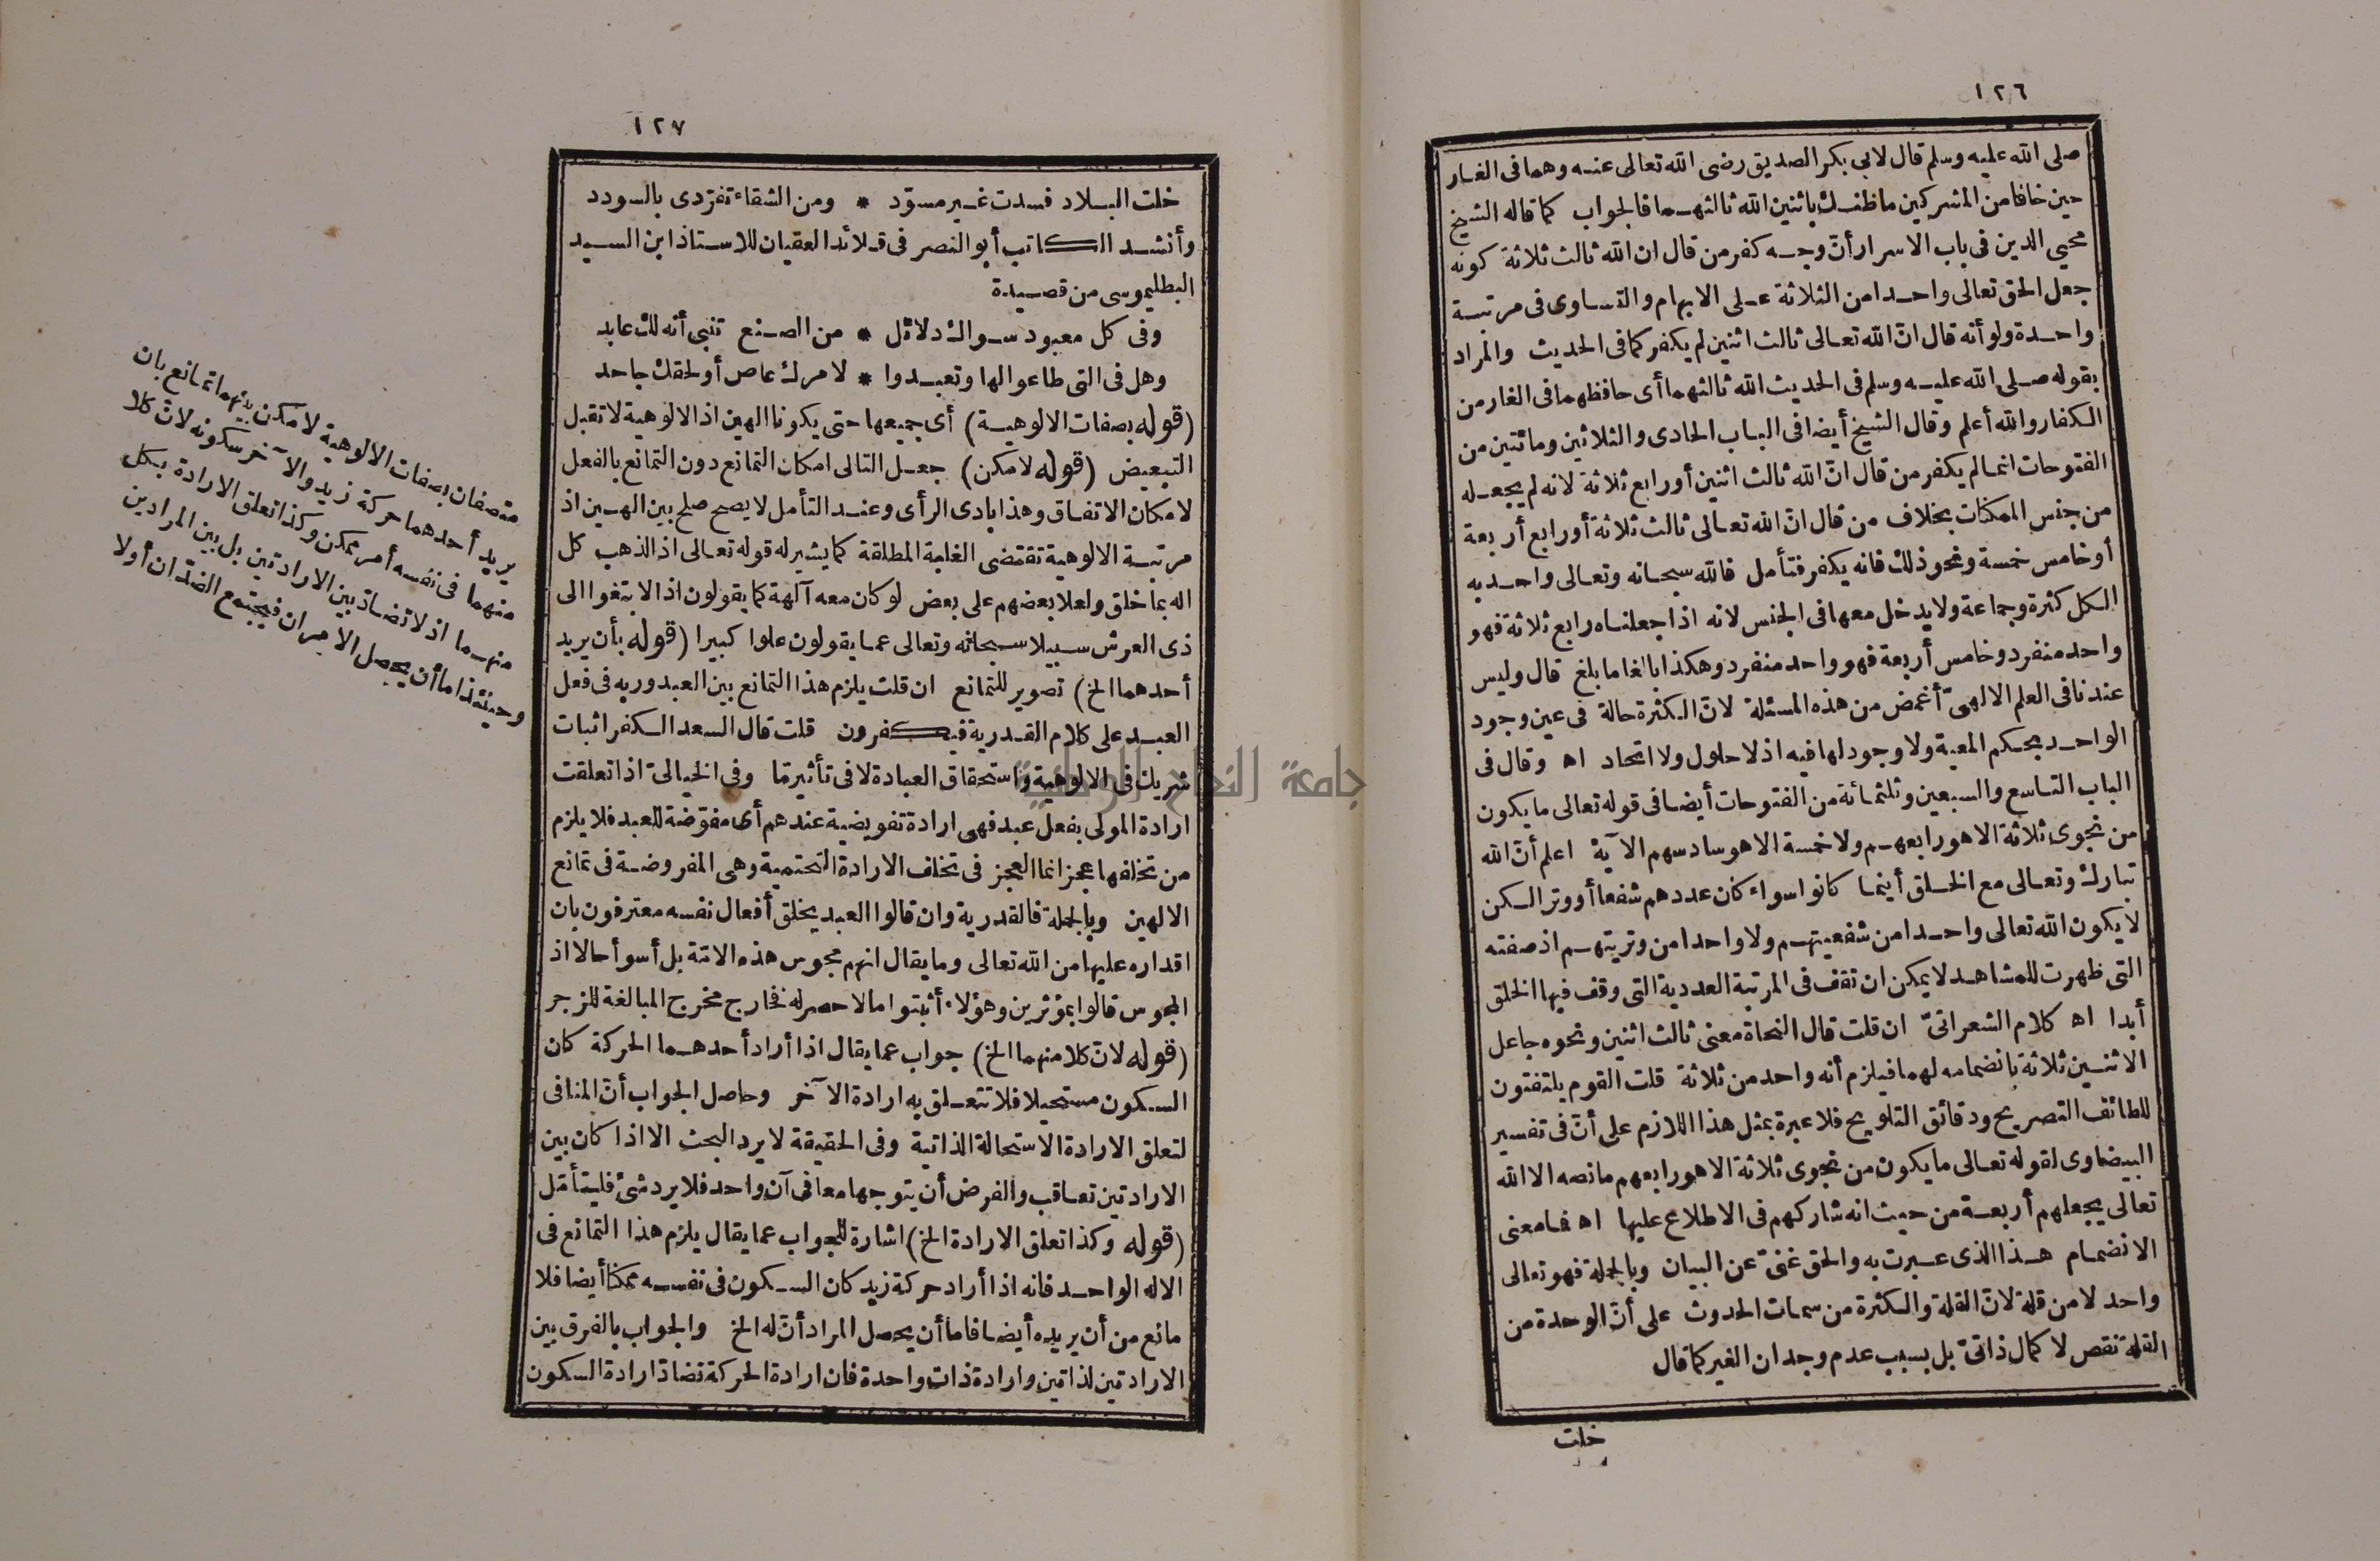 ١٢٦
صلى الله عليه وسلم قال لابى بكر الصديق رضى الله تعالى عنه وهما فى الغار
حين خافا من المشركين ما ظنك باثنين الله ثالثهما فالجواب كما قاله الشيخ
محيي الدين فى باب الاسرار أنّ وجه كفر من قال ان الله ثالث ثلاثة كونه
جعل الحق تعالى واحدا من الثلاثة على الابهام والتساوى فى مرتبة
واحدة ولو أنه قال انّ الله تعالى ثالث اثنين لم يكفر كما فى الحديث والمراد
بقوله صلى الله عليه وسلم فى الحديث الله ثالثهما أى حافظهما فى الغار من
الكفار والله أعلم وقال الشيخ أيضا فى الباب الحادى والثلاثين ومائتين من
الفتوحات انما لم يكفر من قال انّ الله ثالث اثنين أو رابع ثلاثة لانه لم يجعله
من جنس الممكنات بخلاف من قال انّ الله تعالى ثالث ثلاثة أو رابع أربعة
أو خامس خمسة ونحو ذلك فانه يكفر فتأمل فالله سبحانه وتعالى واحد به
الكل كثرة وجماعة ولا يدخل معها فى الجنس لانه اذا جعلناه رابع ثلاثة فهو
واحد منفرد وخامس أربعة فهو واحد منفرد وهكذا بالغا ما بلغ قال وليس
عندنا فى العلم الالهىّ أغمض من هذه المسئلة لانّ الكثرة حالة فى عين وجود
الواحد بحكم المعية ولا وجود لها فيه اذ لا حلول ولا اتحاد اه وقال فى
الباب التاسع والسبعين وثلثمائة من الفتوحات أيضا فى قوله تعالى ما يكون
من نجوى ثلاثة الا هو رابعهم ولا خمسة الا هو سادسهم الآية اعلم أنّ الله
تبارك وتعالى مع الخلق أينما كانوا سواء كان عددهم شفعا أو وترا لكن
لا يكون الله تعالى واحدا من شفعيتهم ولا واحدا من وتريتهم اذ صفته
التى ظهرت للمشاهد لا يمكن ان تقف فى المرتبة العددية التى وقف فيها الخلق
أبدا اه كلام الشعرانىّ ان قلت قال النحاة معنى ثالث اثنين ونحوه جاعل
الاثنين ثلاثة بانضمامه لهما فيلزم أنه واحد من ثلاثة قلت القوم يلتفتون
للطائف التصريح ودقائق التلويح فلا عبرة بمثل هذا اللازم على أنّ فى تفسير
البيضاوى لقوله تعالى ما يكون من نجوى ثلاثة الا هو رابعهم ما نصه الا الله
تعالى يجعلهم أربعة من حيث انه شاركهم فى الاطلاع عليها اه فما معنى
الانضمام هذا الذى عبرت به والحق غنىّ عن البيان وبالجملة فهو تعالى
واحد لا من قلة لانّ القلة والكثرة من سمات الحدوث على أنّ الوحدة من
القلة نقص لا كمال ذاتىّ بل بسبب عدم وجدان الغير كما قال
خلت
١٢٧
خلت البلاد فسدت غير مسوّد * ومن الشقاء تفرّدى بالسودد
وأنشد الكاتب أبو النصر فى قلائد العقيان للاستاذ ابن السيد
البطليموسى من قصيدة
وفى كل معبود سواك دلائل * من الصنع تنبى أنه لك عابد
وهل فى التى طاعوا لها وتعبدوا * لامرك عاص أو لحقك جاحد
(قوله بصفات الالوهية) أى جميعها حتى يكونا الهين اذ الالوهية لا تقبل
التبعيض (قوله لامكن) جعل التالى امكان التمانع دون التمانع بالفعل
لامكان الاتفاق وهذا بادى الرأى وعند التأمل لا يصح صلح بين الهين اذ
مرتبة الالوهية تقتضى الغلبة المطلقة كما يشير له قوله تعالى اذا لذهب كل
اله بما خلق ولعلا بعضهم على بعض لو كان معه آلهة كما يقولون اذا لابتغوا الى
ذى العرش سبيلا سبحانه وتعالى عما يقولون علوا كبيرا (قوله بأن يريد
أحدهما الخ) تصوير للتمانع ان قلت يلزم هذا التمانع بين العبد وربه فى فعل
العبد على كلام القدرية فيكفرون قلت قال السعد الكفر اثبات
شريك فى الالوهية واستحقاق العبادة لا فى تأثير مّا وفى الخيالىّ اذا تعلقت
ارادة المولى بفعل عبد فهى ارادة تفويضية عندهم أى مفوّضة للعبد فلا يلزم
من تخلفها عجز انما العجز فى تخلف الارادة التحتمية وهى المفروضة فى تمانع
الالهين وبالجملة فالقدرية وان قالوا العبد يخلق أفعال نفسه معترفون بان
اقداره عليها من الله تعالى وما يقال انهم مجوس هذه الامّة بل أسوأ حالا اذ
المجوس قالوا بمؤثرين وهؤلاء أثبتوا ما لا حصر له فخارج مخرج المبالغة للزجر
(قوله لانّ كلا منهما الخ) جواب عما يقال اذا أراد أحدهما الحركة كان
السكون مستحيلا فلا تتعلق به ارادة الآخر وحاصل الجواب أنّ المنافى
لتعلق الارادة الاستحالة الذاتية وفى الحقيقة لا يرد البحث الا اذا كان بين
الارادتين تعاقب والفرض أن يتوجها معا فى آن واحد فلا يرد شئ فليتأمّل
(قوله وكذا تعلق الارادة الخ) اشارة للجواب عما يقال يلزم هذا التمانع فى
الاله الواحد فانه اذا أراد حركة زيد كان السكون فى نفسه ممكنا أيضا فلا
مانع من أن يريده أيضا فاما أن يحصل المراد أنّ له الخ والجواب بالفرق بين
الارادتين لذاتين وارادة ذات واحدة فان ارادة الحركة تضادّ ارادة السكون
متصفان بصفات الالوهية لامكن بينهما تمانع بان
يريد أحدهما حركة زيد والآخر سكونه لانّ كلا
منهما فى نفسه أمر ممكن وكذا تعلق الارادة بكل
منهما اذ لا تضادّ بين الارادتين بل بين المرادين
وحينئذ اما أن يحصل الامران فيجتمع الضدّان أولا
جامعة النجاح الوطنية